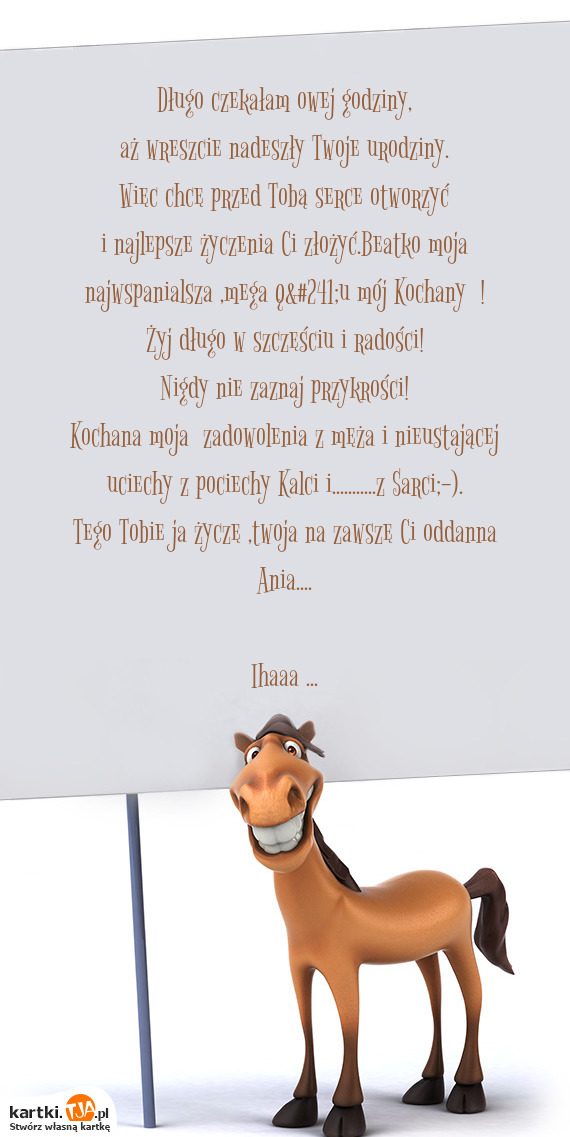 Długo czekałam owej godziny,
aż wreszcie nadeszły Twoje urodziny.
Więc chcę przed Tobą serce otworzyć
i najlepsze życzenia Ci złożyć.Beatko moja
najwspanialsza ,mega q&#241;u mój Kochany !
Żyj długo w szczęściu i radości!
Nigdy nie zaznaj przykrości!
Kochana moja zadowolenia z męża i nieustającej
uciechy z pociechy Kalci i...........z Sarci;-).
Tego Tobie ja życzę ,twoja na zawszę Ci oddanna
Ania....
Ihaaa ...
kartki.TJA.pl
Stwórz własną kartkę